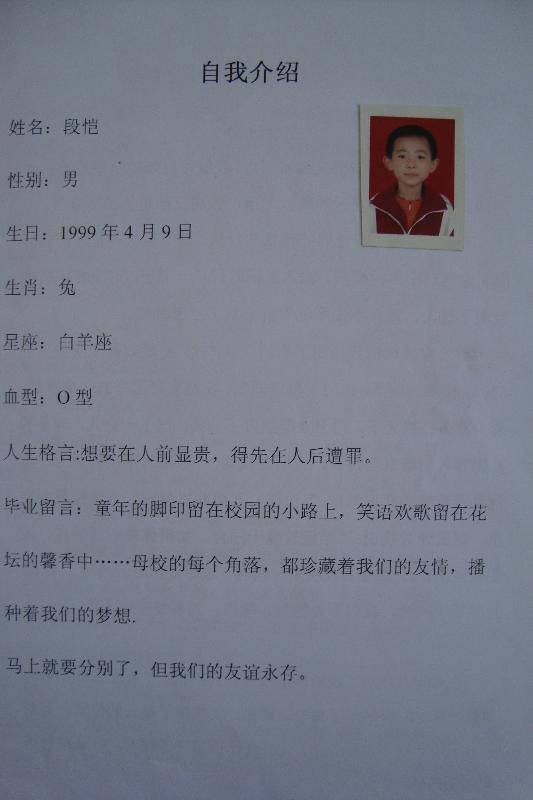 自我介绍
姓名：段恺
性别：男
生日：1999年4月9日
生肖：兔
星座：白羊座
血型：O型
人生格言:想要在人前显贵，得先在人后遭罪。
毕业留言：童年的脚印留在校园的小路上，笑语欢歌留在花
坛的馨香中……母校的每个角落，都珍藏着我们的友情，播
种着我们的梦想.
马上就要分别了，但我们的友谊永存。